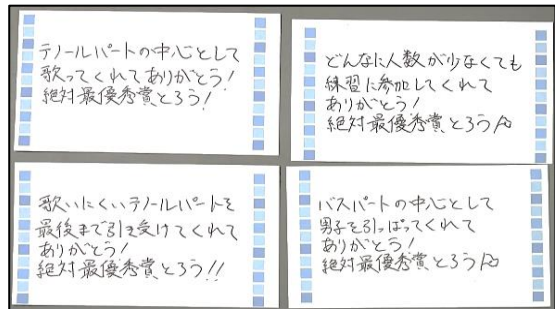 テノールパートの中心として
歌ってくれてありがとう!
絶対最優秀賞とろう!
どんなに人数が少なくても
練習に参加してくれて
ありがとう!
絶対最優秀賞とろう
歌いにくいテノールパートを
最後まで引き受けてくれて
ありがとう!
絶対最優秀賞とろう!!
バスパートの中心として
男子を引っぱってくれて
ありがとう!
絶対最優秀賞とろう